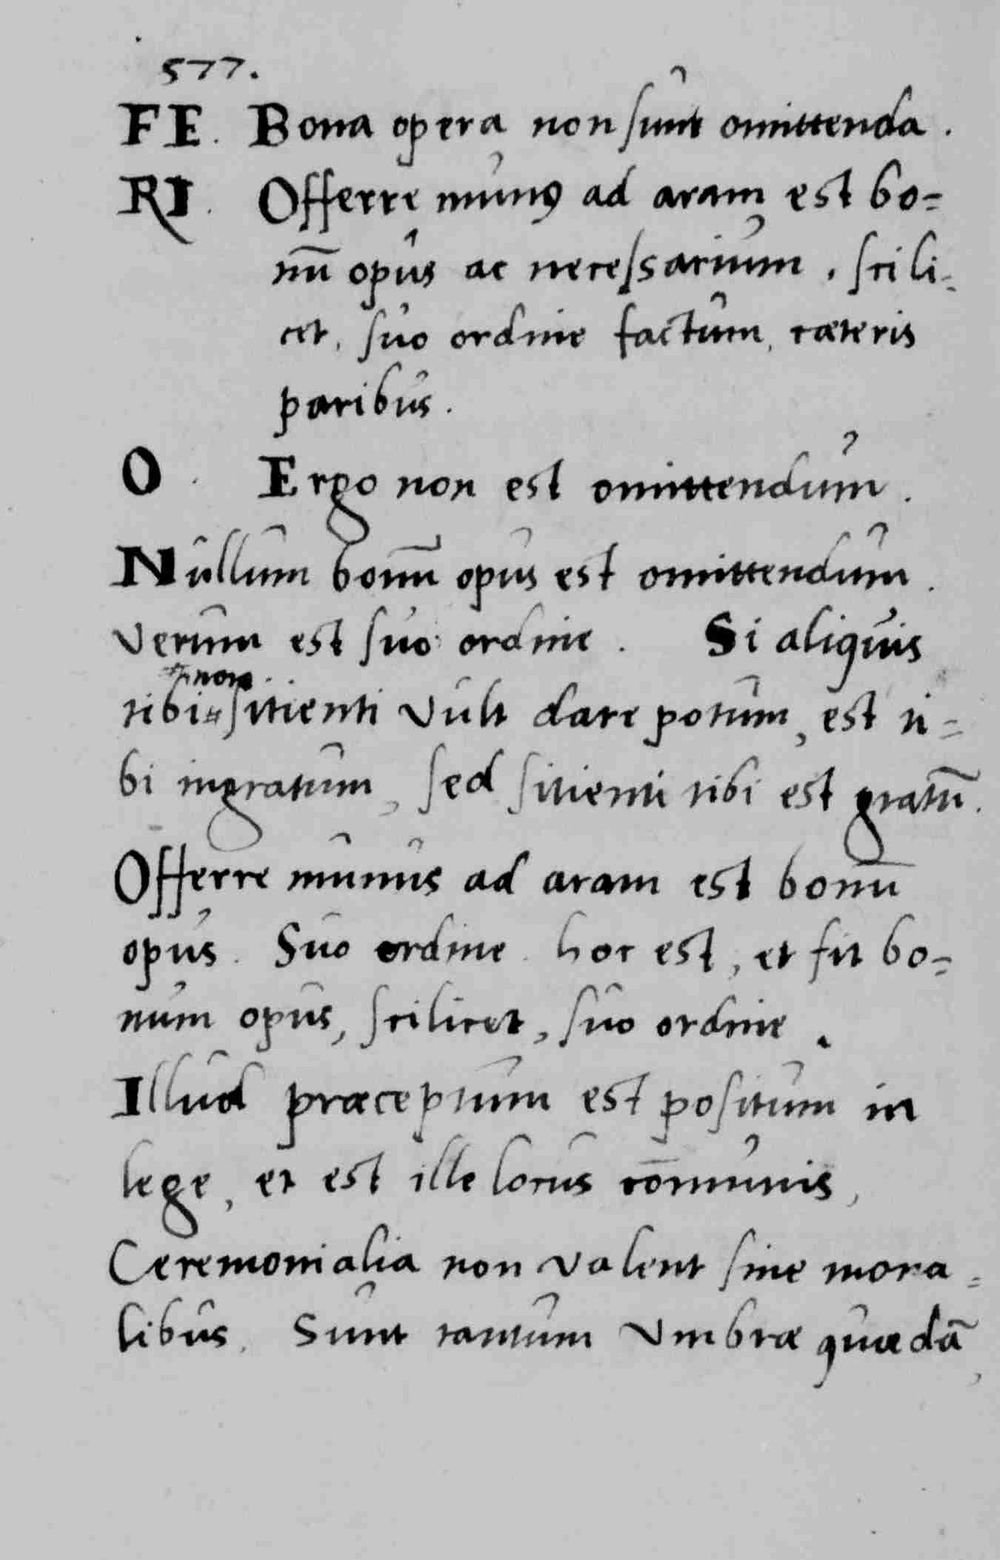 577.
FE. Bona opera non sunt omittenda.
RI. Offerre munꝰ ad aram est bo=
nū opus ac necessarium, scili=
cet, suo ordine factum, cæteris
paribus.
O. Ergo non est omittendum.
Nullum bonū opus est omittendum.
Verum est suo ordine. Si aliquis
non
tibi sitienti vult dare potum, est ti=
bi ingratum, sed sitienti tibi est gratū.
Offerre munus ad aram est bonū
opus. Suo ordine hoc est, et fit bo=
num opus, scilicet, suo ordine.
Illud præceptum est positum in
lege, et est ille locus cōmunis,
Ceremonialia non valent sine mora=
libus. Sunt tantum Vmbræ quædā,